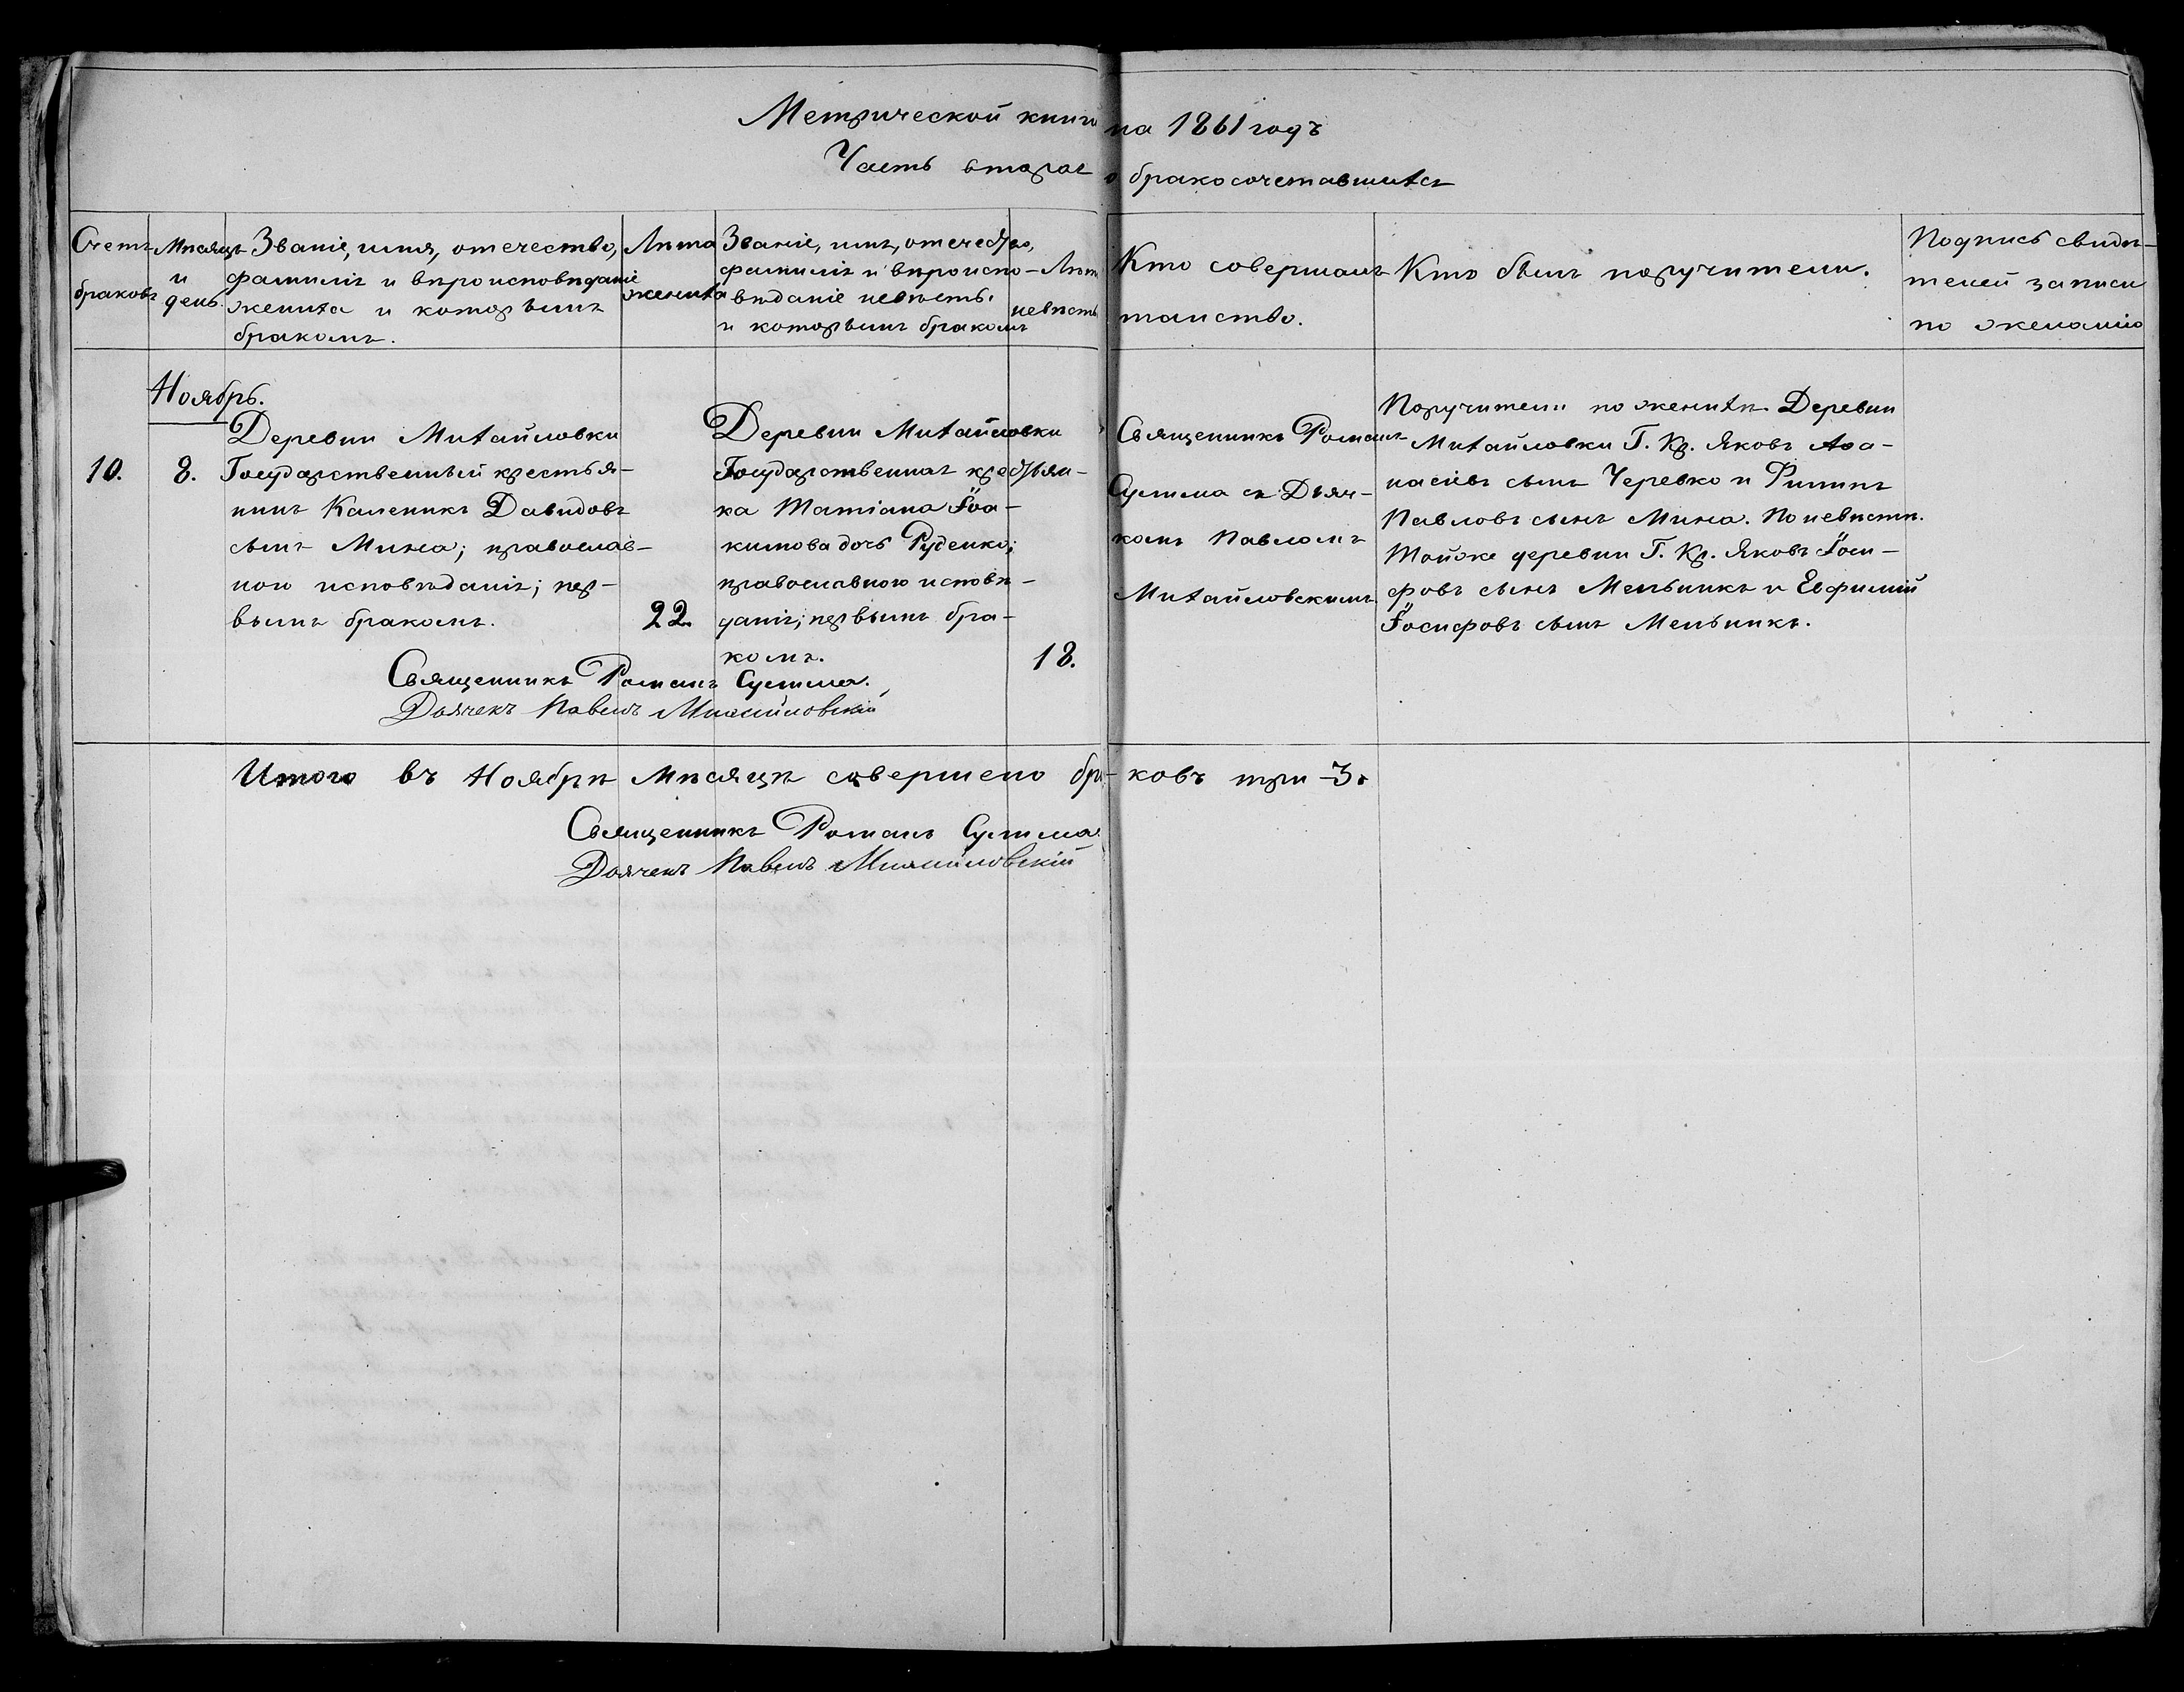 Метрической книги на 1861 годъ
Часть вторая о бракосочетавшихся
Счетъ браковъ
Мѣсяцъ и день.
Званіе, имя, отечество,
фамилія и вѣроисповѣданіе
жениха и которымъ
бракомъ.
Лѣта
жениха
Званіе, имя, отечество,
фамилія и вѣроиспо-
вѣданіе невѣсты
и которымъ бракомъ
Лѣта
невѣсты
Кто совершалъ
таинство.
Кто былъ поручители.
Подпись свидѣ-
телей записи
по желанію
Ноябрь.
10.
8.
Деревни Михайловки
Государственный крестья-
нинъ Каленикъ Давидовъ
сынъ Миха; православ-
ного исповѣданія; пер-
вымъ бракомъ.
22.
Деревни Михайловки
Государственная крестьян-
ка Татіана Іоа-
кимова дочь Руденко;
православного исповѣ-
данія; первымъ бра-
комъ.
18.
Священникъ Романъ
Сулима съ Дьяч-
комъ Павломъ
Михайловскимъ
Поручители по женихѣ Деревни
Михайловки Г. Кр. Яковъ Аѳа-
насіевъ сынъ Черевко и Филипъ
Павловъ сынъ Миха. По невѣстѣ.
Тойже деревни Г. Кр. Яковъ Іоси-
фовъ сынъ Мельникъ и Евфимій
Іосифовъ сынъ Мельникъ.
Священникъ Романъ Сулима.
Дьячекъ Павелъ Михайловскій
Итого въ Ноябрѣ мѣсяцѣ совершено бра-ковъ три -3.
Священникъ Романъ Сулима
Дьячекъ Павелъ Михайловскій